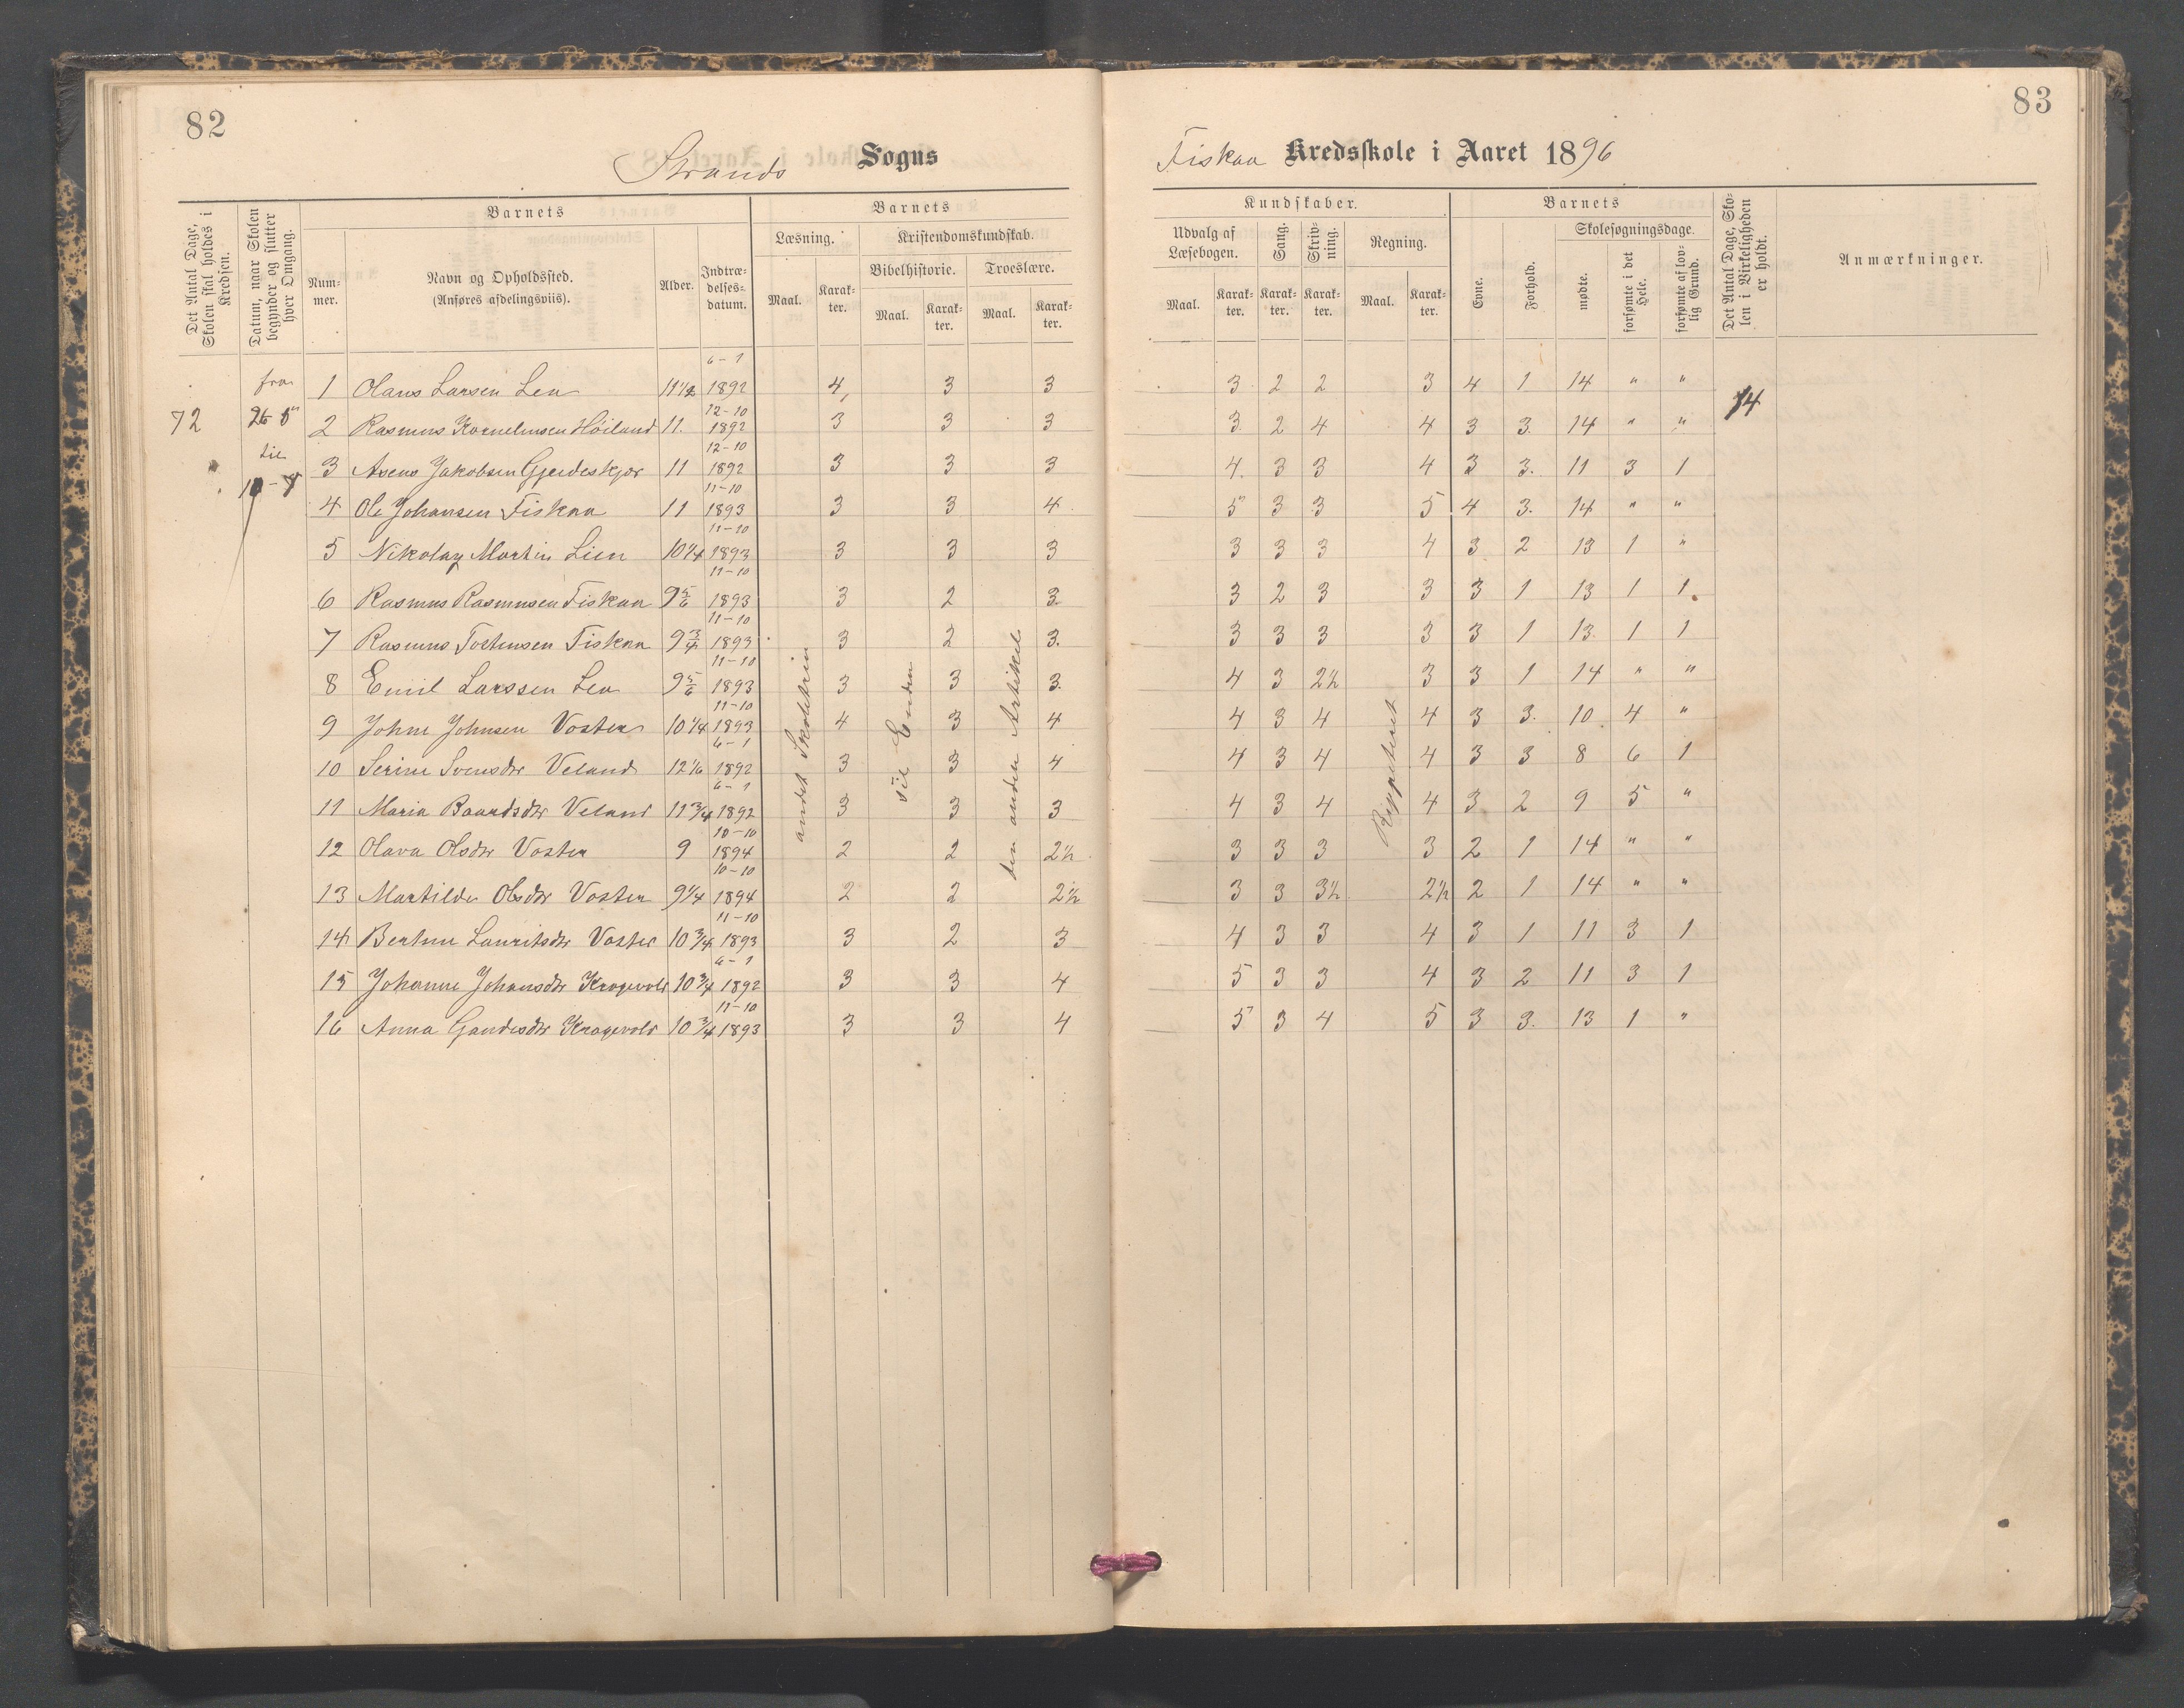 82
Strands Sogns
Det Antal Dage, Skolen skal holdes i Kredsen.
Datum, naar Skolen begynder og slutter hver Omgang.
Barnets
Nummer.
Navn og Opholdssted.
(Anføres afdelingsviis).
Alder.
Indtrædelsesdatum.
Barnets
Læsning.
Maal.
Karakter.
Kristendomskundskab.
Bibelhistorie.
Maal.
Karakter.
Troeslære.
Maal.
Karakter.
72
fra
26
til
1 Olaus Larsen Lea 11½ 6-1 1892 4 3 3
2 Rasmus Kornelinsen Höiland 11. 12-10 1892 3 3 3
3 Asens Jakobsen Gjerdeskjær 11 12-10 1892 3 3 3
4 Ole Johansen Fiskaa 11 11-10 1893 3 3 4
5 Nikolay Martin Lien 10¼ 11-10 1893 3 3 3
6 Rasmus Rasmusen Fiskaa 9 5/6 11-10 1893 3 2 3.
7 Rasmus Tostensen Fiskaa 9¾ 11-10 1893 3 2 3.
8 Emil Larssen Lea 9 5/6 11-10 1893 3 3 3.
9 Johne Johnsen Voster 10¼ 11-10 1893 4 3 4
10 Serine Svensdtr Veland 12 1/6 6-1 1892 3 3 4
11 Maria Baardsdtr Veland 11¾ 6-1 1892 3 3 3
12 Olava Olsdtr Voster 9 10-10 1894 2 2 2½
13 Martilde Olsdtr Voster 9¼ 10-10 1894 2 2 2½
14 Bertine Lauritsdtr Voster 10¾ 11-10 1893 3 2 3
15 Johanne Johansdtr Kragevold 10¾ 6-1 1892 3 3 4
16 Anna Gaudesdtr Kragevold 10¾ 11-10 1893 3 3 4
andet Skoletrin
til Enden
den anden Artikel
83
Fiskaa Kredsskole i Aaret 1896
Kundskaber.
Udvalg af Læsebogen.
Maal.
Karakter.
Sang.
Karakter.
Skrivning.
Karakter.
Regning.
Maal.
Karakter.
Barnets
Evne.
Forhold.
Skolesøgningsdage.
mødte.
forsømte i det Hele.
forsømte af lovlig Grund.
Det Antal Dage, Skolen i Virkeligheden er holdt.
Anmærkninger.
3 2 2 3 4 1 14 " "
14
3 2 4 4 3 3. 14 " "
4. 3 3 4 3 3. 11 3 1
5 3 3 5 4 3. 14 " "
3 3 3 4 3 2 13 1 "
3 2 3 3 3 1 13 1 1
3 3 3 3 3 1 13 1 1
4 3 2½ 3 3 1 14 " "
4 3 4 4 3 3. 10 4 "
4 3 4 4 3 3 8 6 1
4 3 4 4 3 2 9 5 "
3 3 3 3 2 1 14 " "
3 3 3½ 2½ 2 1 14 " "
4 3 3 4 3 1 11 3 1
5 3 3 4 3 2 11 3 1
5 3 4 5 3 3. 13 1 "
Reppeteret